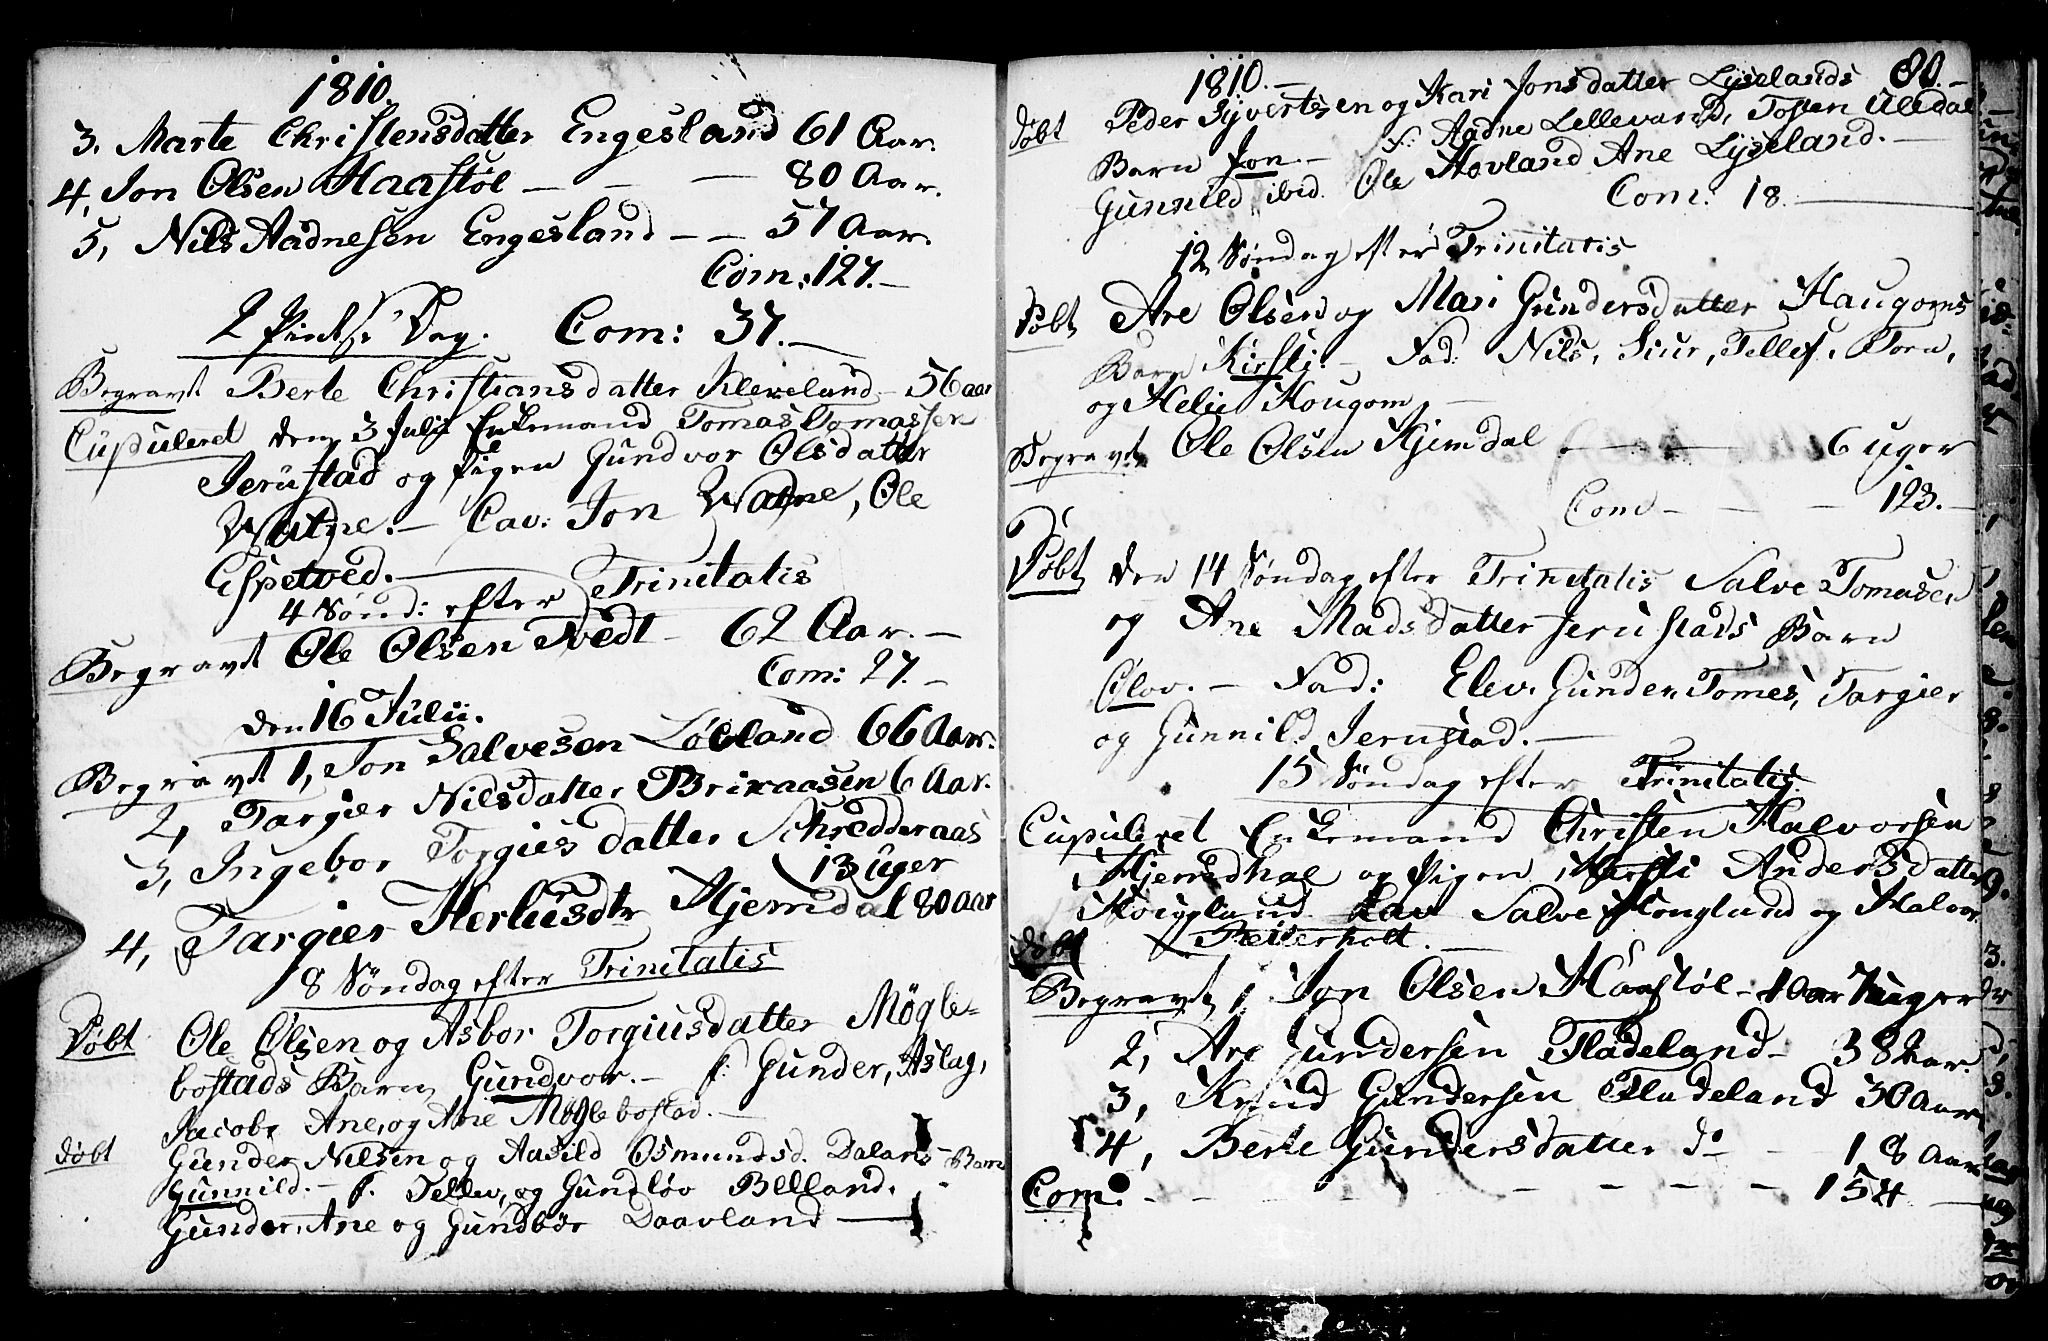 1810.
3. Marte Christensdatter Engesland 61 Aar.
4, Jon Olsen Haastøl — — — 80 Aar.
5, Nils Aadnesen Engesland — — 57 Aar.
Com: 127.—
2 Pintse Dag. Com: 37.—
Begravt Berte Christiansdatter Kleveland — 56 aar
Cupuleret den 3 Julii Enkemand Tomas Tomassen
Jerustad og Pigen Gundvor Olsdatter
Watne.— Cav: Jon Watne, Ole
Espetved.—
4 Sønd: efter Trinitatis
Begravt Ole Olsen Tvedt — 62 Aar.—
Com: 27.—
den 16 Julii.
Begravt 1, Jon Salvesen Løland 66 Aar.
2, Targier Nilsdatter Brixaasen 6 Aar.
3, Ingebor Torgiesdatter Schredderaas
13 uger
4, Targier Herlusdtr Hjemdal 80 aar
8 Søndag efter Trinitatis
Døbt Ole Olsen og Asbor Torgiusdatter Møgle-
bostads Barn Gundvor.— f: Gunder, Aslag,
Jacob, Ane, og Ane Møglebostad.—
døbt Gunder Nilsen og Aasild Osmundsd. Dalans — Barn
Gunnild.— f. Tellev, og Gundløv Belland.
Gunder, Ane og Gundbor Daavland —
1810.— 80—
døbt Peder Sjvertsen og Kari Jonsdatter Lyselands
Barn Jon.— F: Aadne Lellevand, Tosten Ulldal
Gunnild ibid. Ole Hovland Ane Lyseland.—
Com: 18.—
12 Søndag efter Trinitatis
Døbt Are Olsen og Mari Gundersdatter Haugoms
Barn Kirsti.— Fad: Nils, Siur, Tellef, Torn,
og Helie Hougom.—
Begravt Ole Olsen Hjemdal — — 6 uger
Com — — — 123.—
Døbt den 14 Søndag efter Trinitatis Salve Tomasen
og Ane Madsdatter Jerustads Barn
Olov.— Fad: Elev, Gunder, Tomes, Targier
og Gunnild Jerustad.—
15 Søndag efter Trinitatis.
Cupuleret Enkemand Christen Halvorsen
Hjemdhal og Pigen Kirsti Andersdatter
Houglund Cav Salve Honglund og Halvor
døbt Beuerholt.—
Begravt, 1 Jon Olsen Haastøl — 1 Aar 7 uger
2, Are Gundersen Fladeland — 38 aar.
3, Knud Gundersen Fladeland 30 aar
4, Berte Gundersdatter do — 18 Aar
Com: — — — — — — — — 154 —